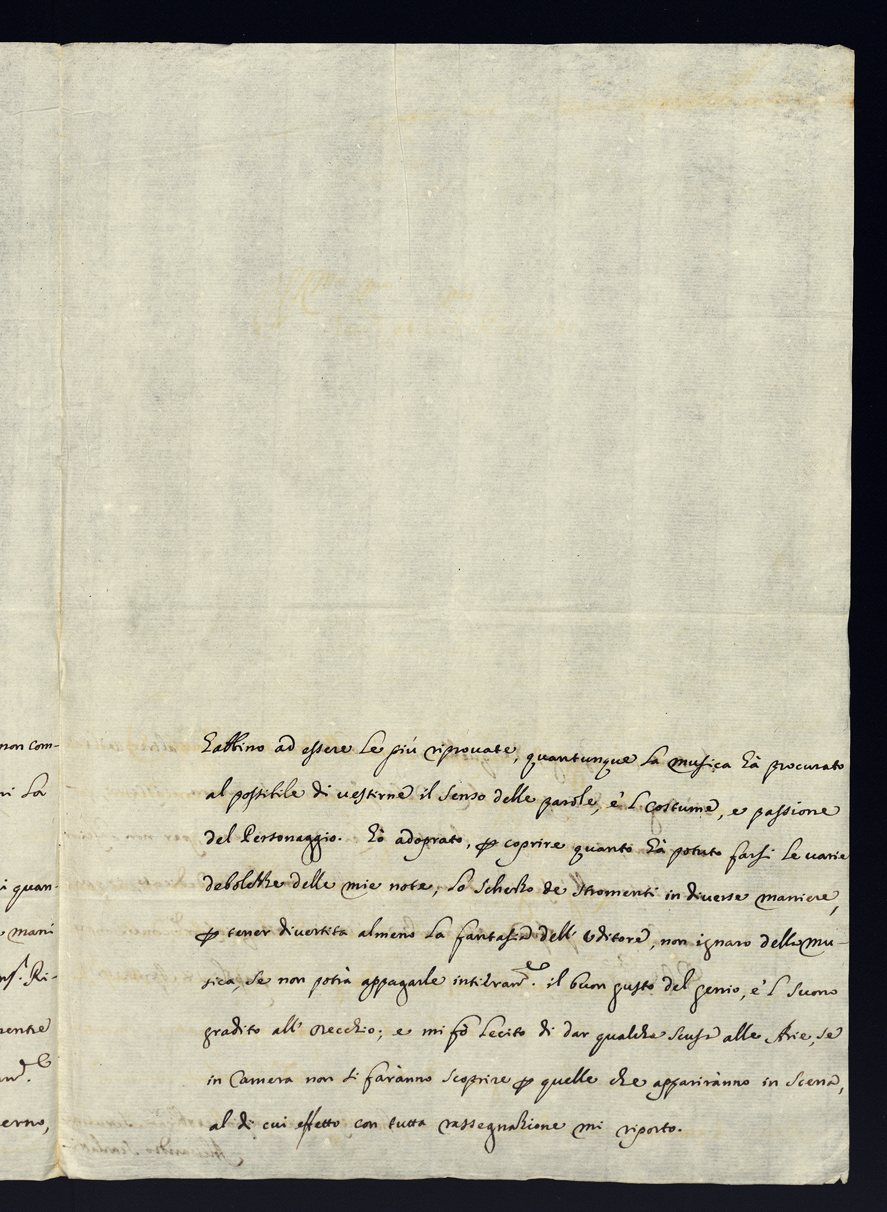 non com-
ni la
i quan-
e mani
Ri-
mente
erno,
habbino ad essere le più riprovate, quantunque la musica hà procurato
al possibile di vestirne il senso delle parole, e 'l costume, e passione
del Personaggio. Hò adoprato, per coprire quanto hà potuto farsi le varie
debolezze delle mie note, lo scherzo de stromenti in diverse maniere,
per tener divertita almeno la fantasia dell' Uditore, non ignaro della mu-
sica, se non potrà appagarle il buon gusto del genio, e 'l suono
gradito all' orecchio; e mi fò lecito di dar qualche scusa alle Arie, se
in Camera non si faranno scoprire per quelle che appariranno in scena,
al di cui effetto con tutta rassegnazione mi riporto.